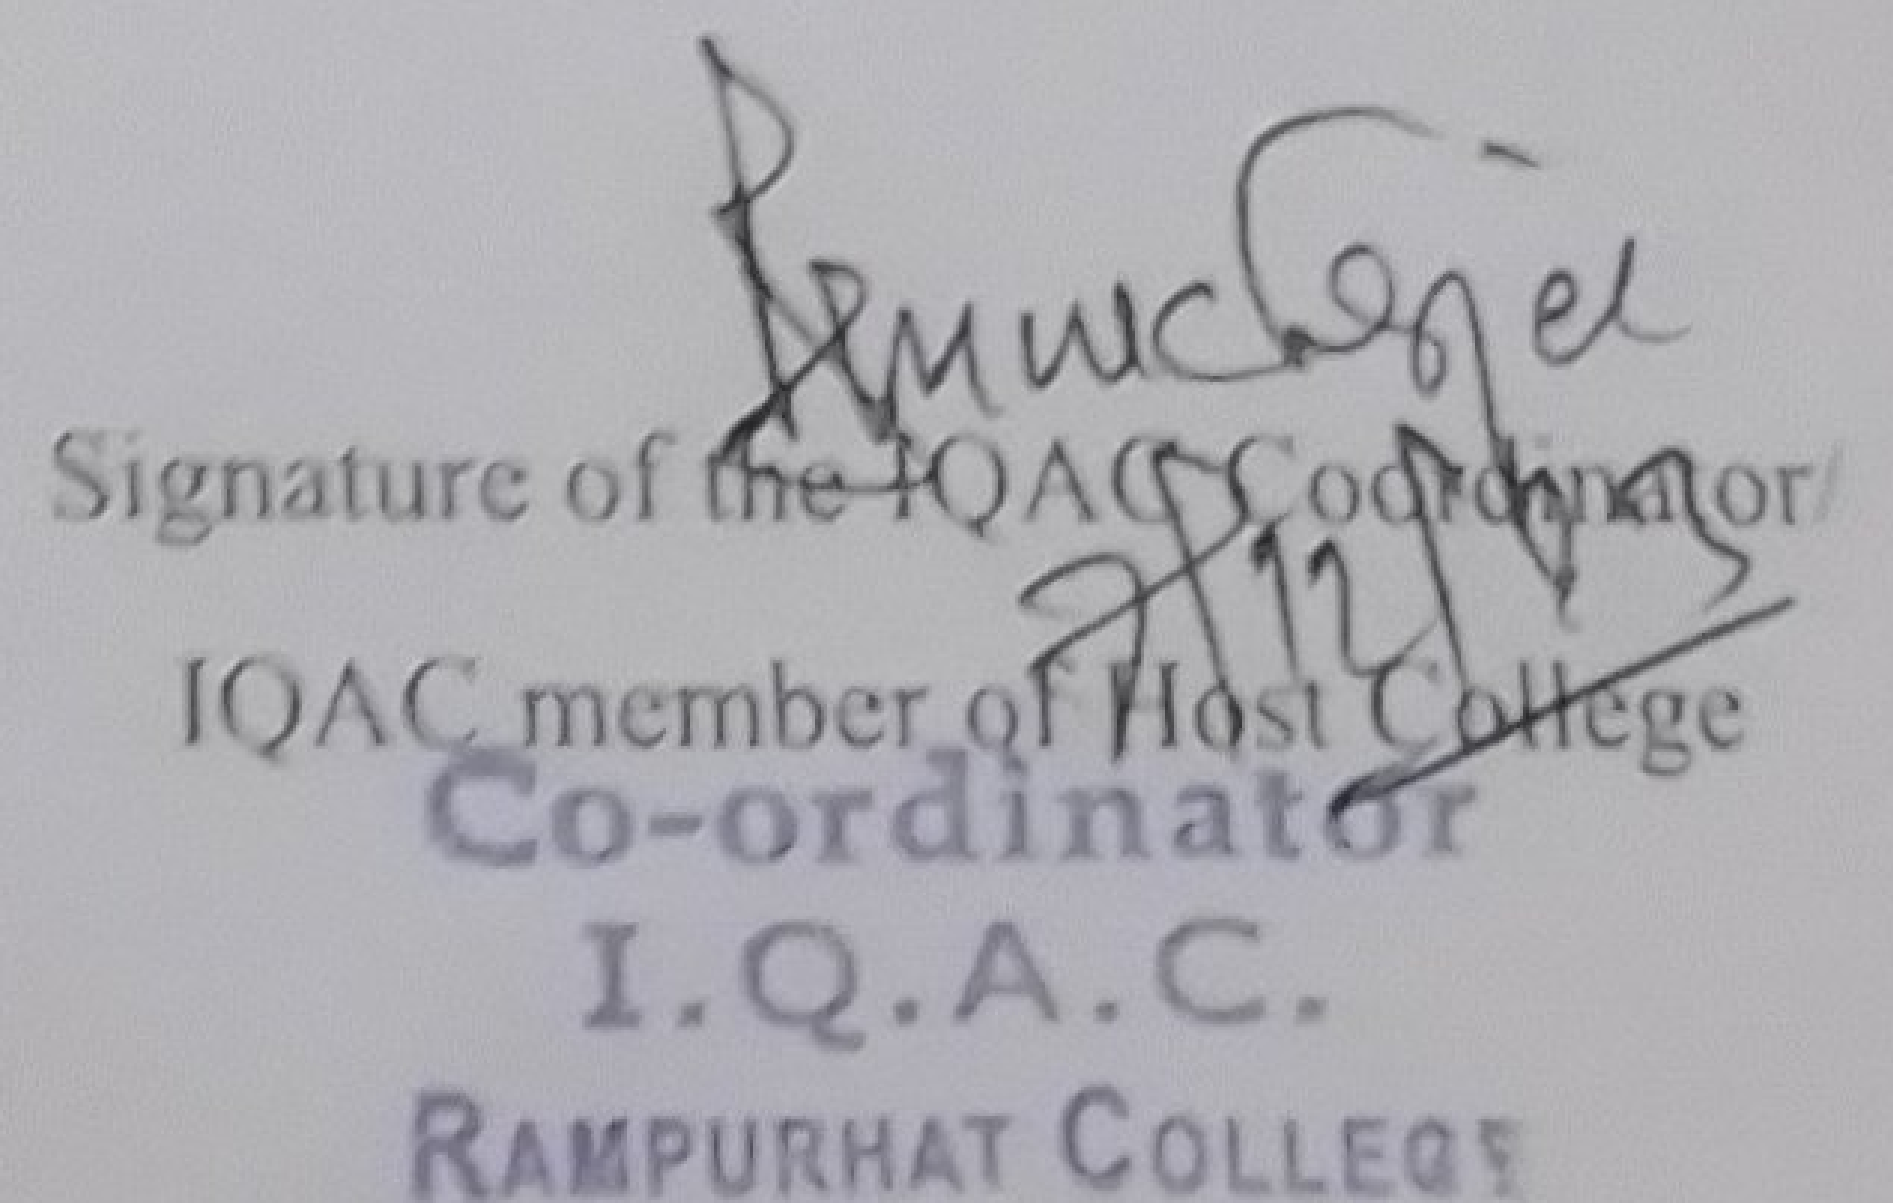 Signature of the IQAC Coordinator/
IQAC member of Host College
Co-ordinator
I.Q.A.C.
RAMPURHAT COLLEGE